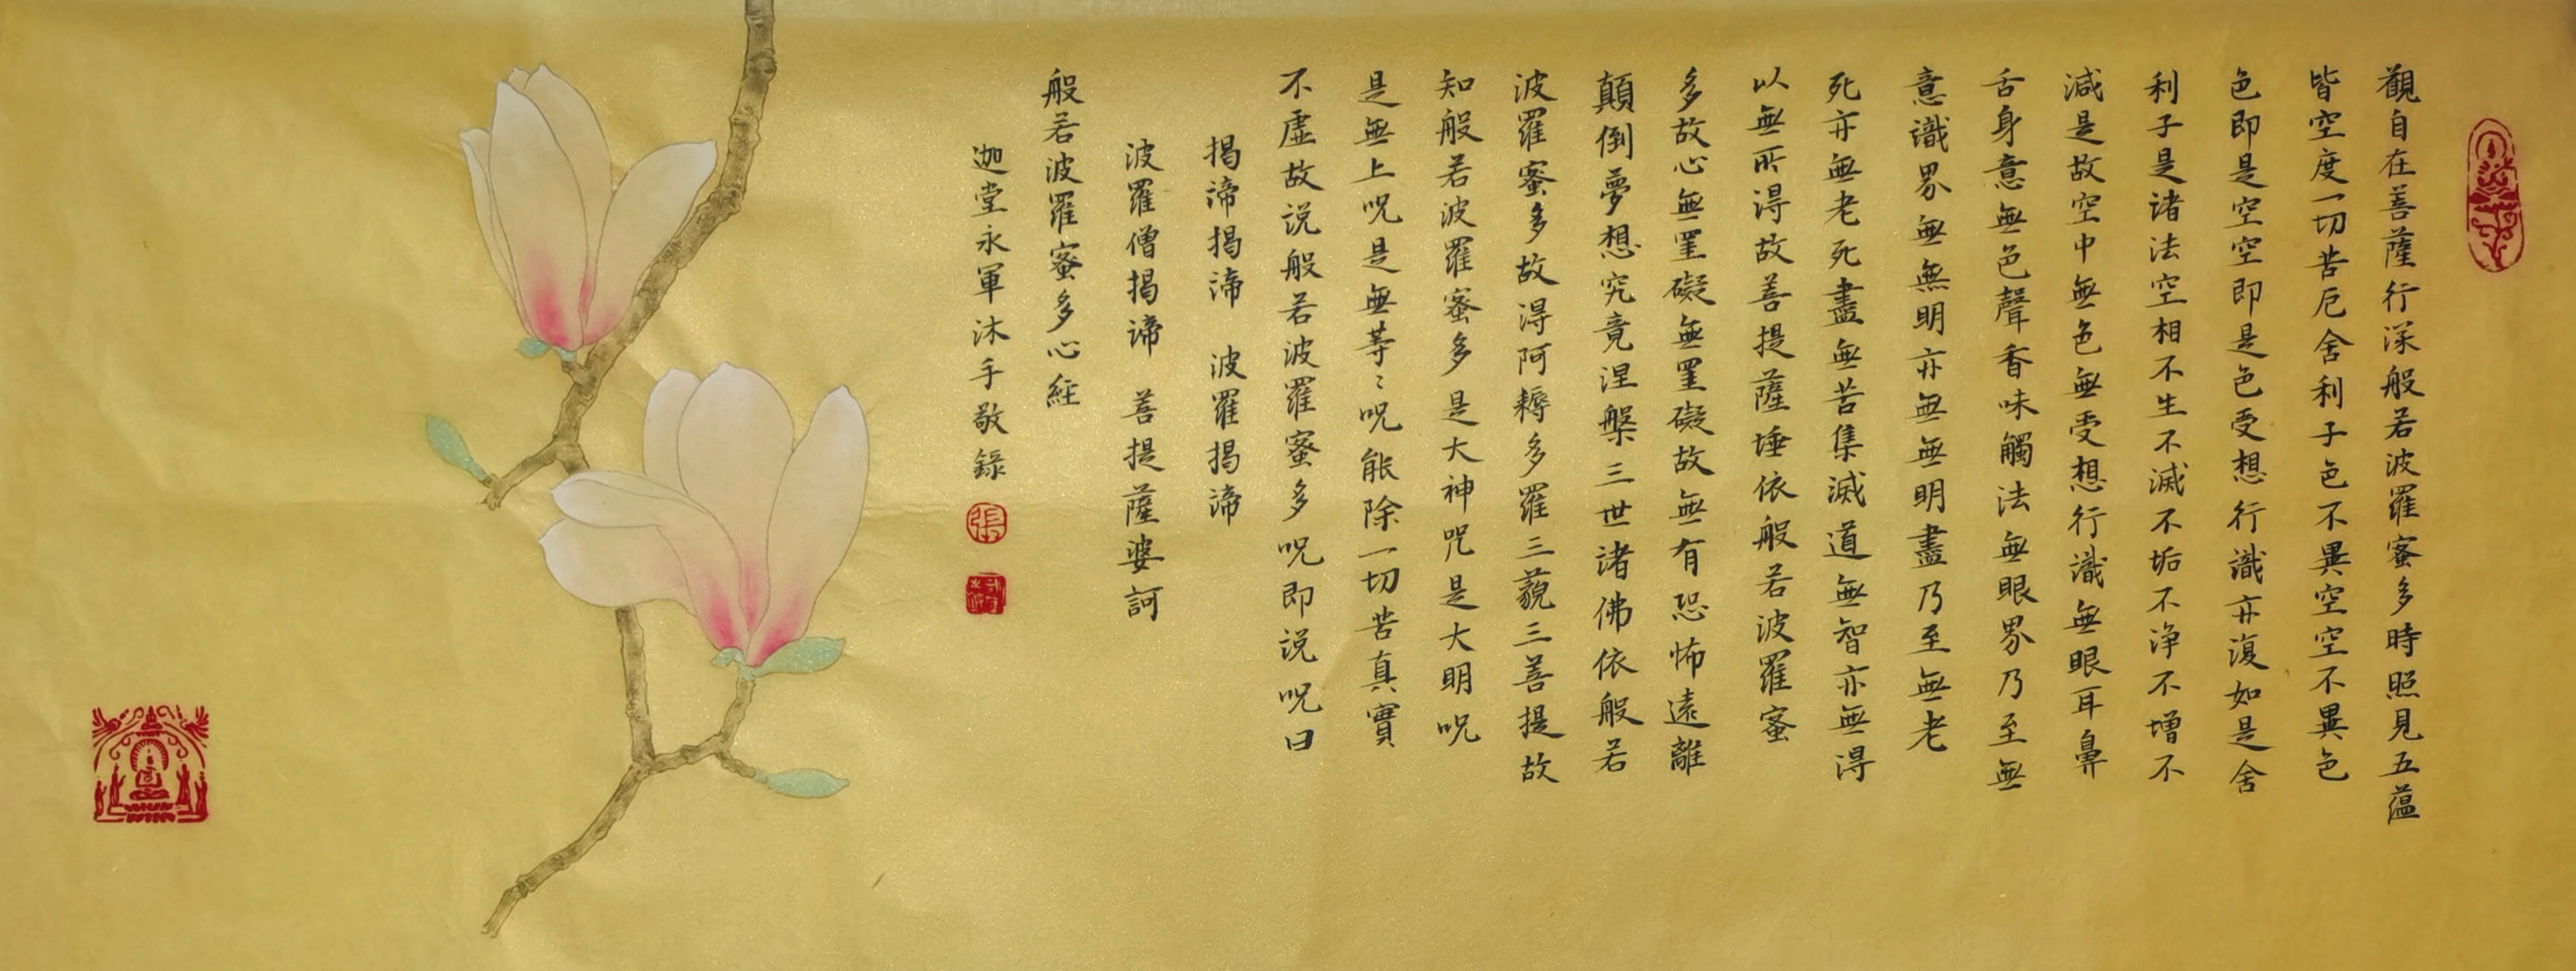 觀自在菩薩行深般若波羅蜜多時照見五蘊
皆空度一切苦厄舍利子色不異空空不異色
色即是空空即是色受想行識亦復如是舍
利子是诸法空相不生不滅不垢不淨不增不
減是故空中無色無受想行識無眼耳鼻
舌身意無色聲香味觸法無眼界乃至無
意識界無無明亦無無明盡乃至無老
死亦無老死盡無苦集滅道無智亦無得
以無所得故菩提薩埵依般若波羅蜜
多故心無罣礙無罣礙故無有恐怖遠離
顛倒夢想究竟涅槃三世诸佛依般若
波羅蜜多故得阿耨多羅三藐三菩提故
知般若波羅蜜多是大神咒是大明呪
是無上呪是無等〻呪能除一切苦真實
不虛故说般若波羅蜜多呪即说呪曰
揭諦揭諦 波羅揭諦
波羅僧揭諦 菩提薩婆訶
般若波羅蜜多心經
迦堂永軍沐手敬錄
張